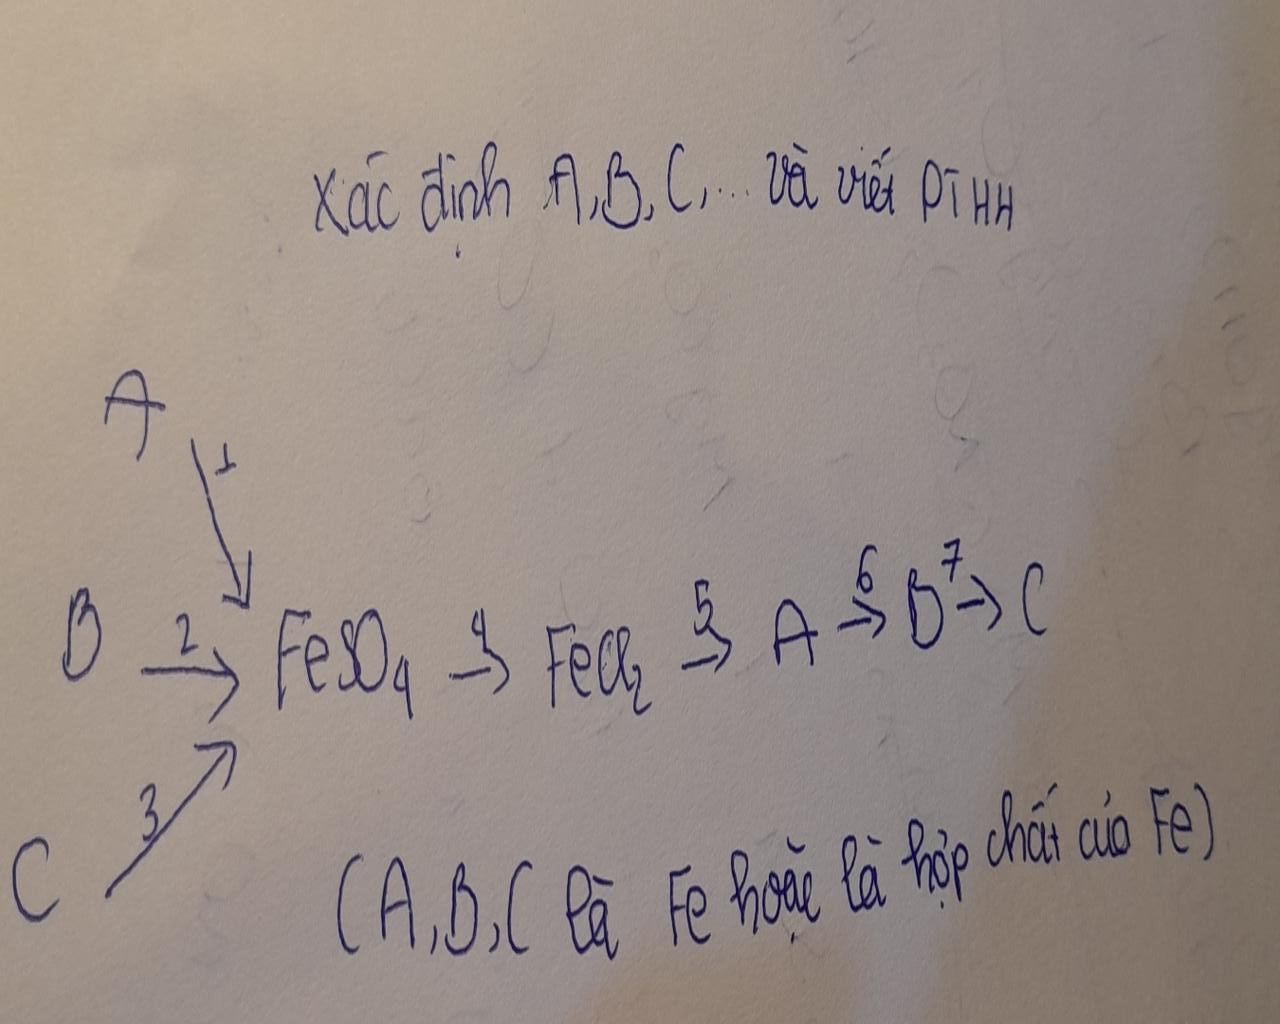 Xác định A, B, C, ... và viết PTHH
A
1
B 2 FeSO4 4 FeCl2 5 A 6 B 7 C
3
C
(A, B, C là Fe hoặc là hợp chất của Fe)